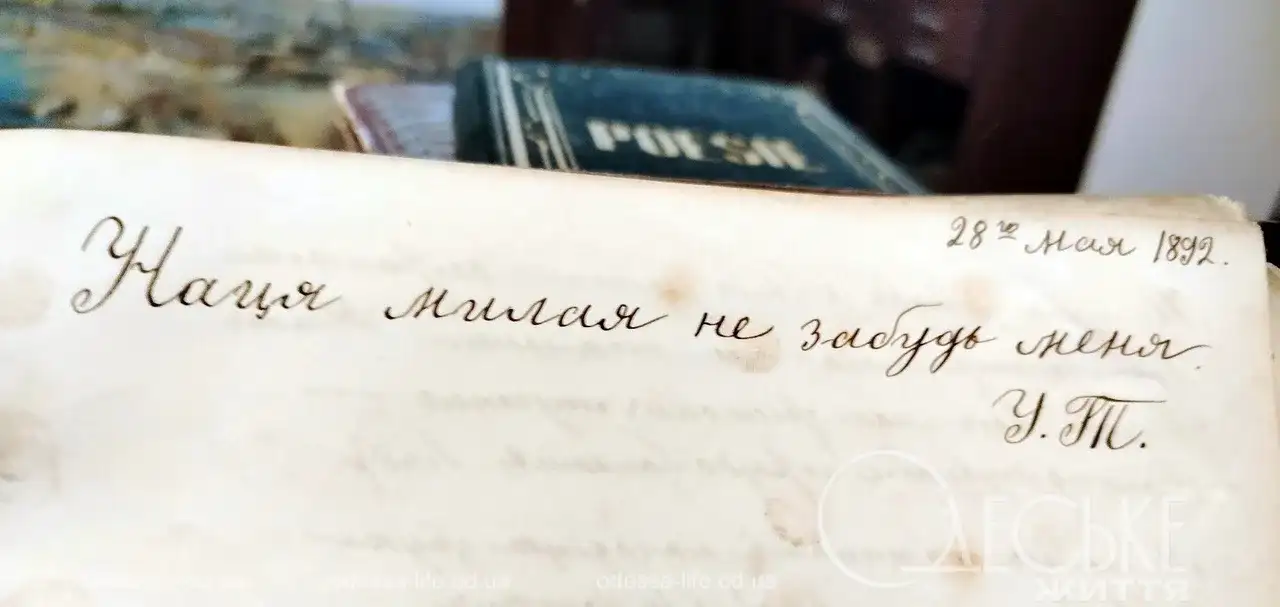 POESIE
28го мая 1892.
Наця милая не забудь меня.
У. Т.
ОДЕСЬКЕ
ЖИТТЯ
odessa-life.od.ua
odessa-life.od.ua